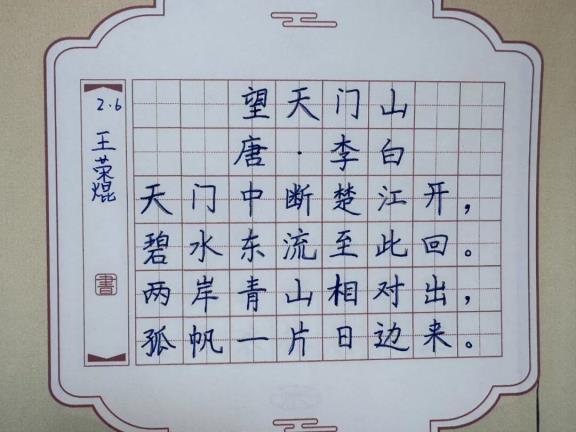 望天门山
唐·李白
天门中断楚江开，
碧水东流至此回。
两岸青山相对出，
孤帆一片日边来。
2.6
王荣焜
書